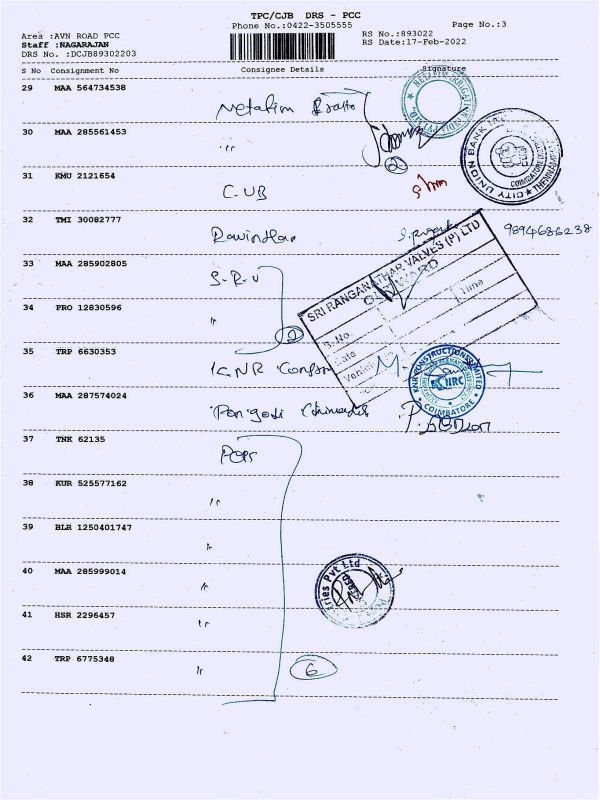 TPC/CJB DRS - PCC
Phone No.:0422-3505555 Page No.:3
Area :AVN ROAD PCC RS No.:893022
Staff :NAGARAJAN RS Date:17-Feb-2022
DRS No. :DCJB89302203
S No Consignment No Consignee Details Signature
29 MAA 564734538
Netafim
30 MAA 285561453
"
2
31 KMU 2121654
C-UB
CITY UNION BANK
COIMBATORE
32 TMI 30082777
9894686238
SRI RANGANATHAR VALVES (P) LTD
INWARD
S. No.
Date
Time
33 MAA 285902805
S.R.V
34 PRO 12830596
"
2
35 TRP 6630353
KNR
KNR CONSTRUCTIONS LIMITED
COIMBATORE
36 MAA 287574024
37 TNK 62135
Pops
38 KUR 525577162
"
39 BLR 1250401747
"
40 MAA 285999014
"
eries Pvt Ltd
41 HSR 2296457
"
42 TRP 6775348
"
6